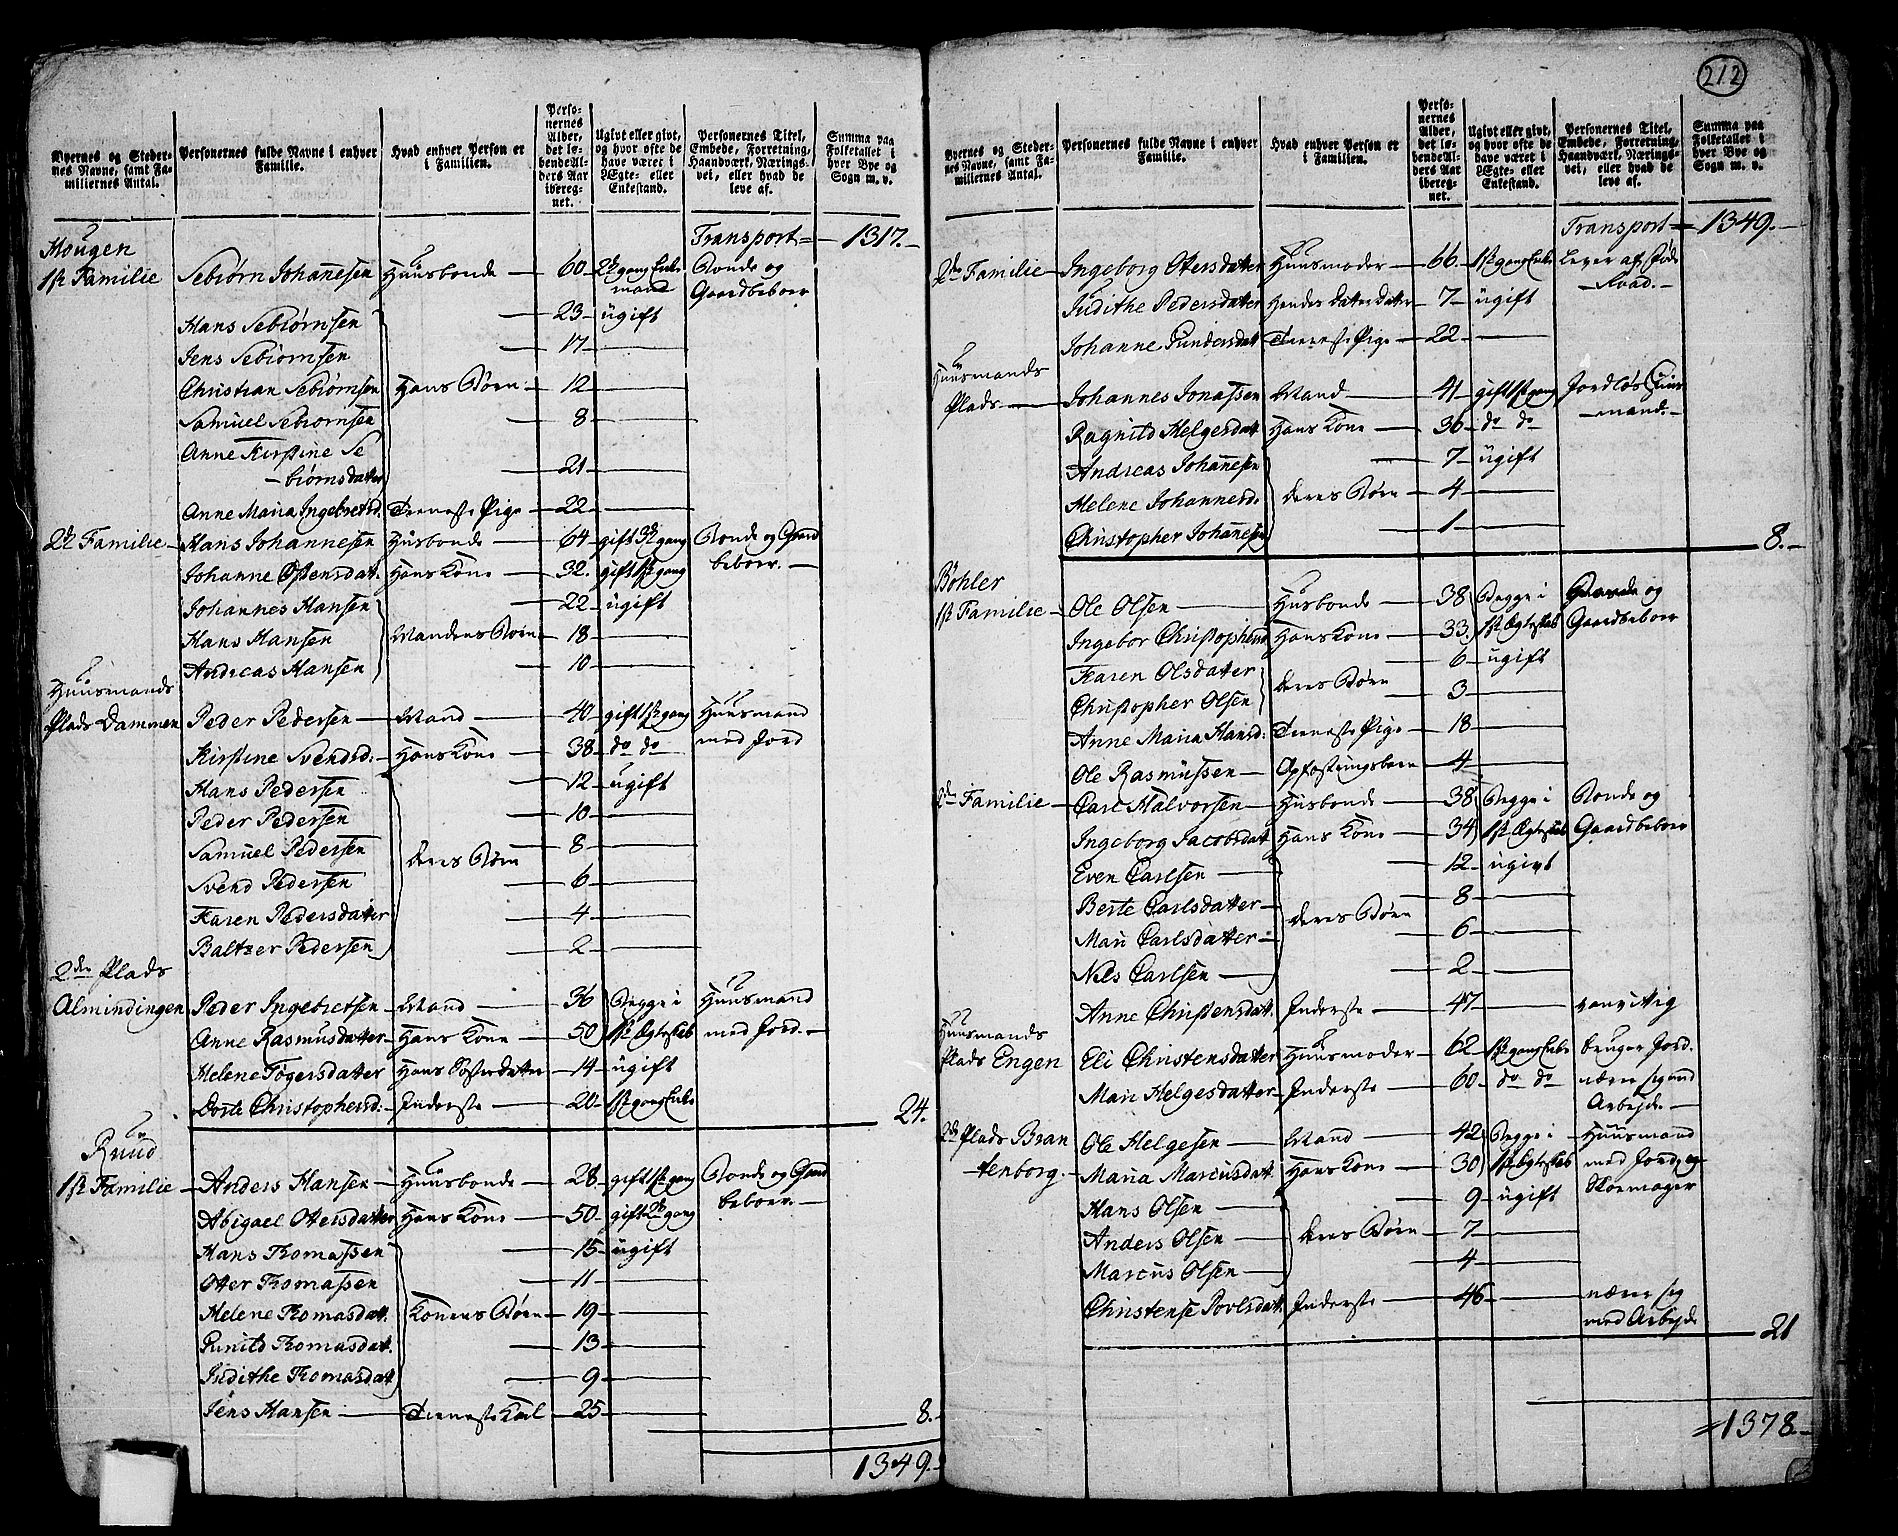 212
Byernes og Steder-
nes Navne, samt Fa-
miliernes Antal.
Personernes fulde Navne i enhver
Familie.
Hvad enhver Person er
i Familien.
Perso-
nernes
Alder,
det lø-
bende Al-
ders Aar
ibereg-
net.
Ugivt eller givt,
og hvor ofte de
have været i
Ægte- eller
Enkestand.
Personernes Titel,
Embede, Forretning,
Haandværk, Nærings-
vei, eller hvad de
leve af.
Summa paa
Folketallet i
hver Bye og
Sogn m. v.
Transport = 1317.
Hougen
1ste Familie Sebiørn Johannesen Huusbonde 60 2de gang Enke Bonde og
mand Gaardbeboer
Hans Sebiørnsen 23 ugift
Jens Sebiørnsen 17
Christian Sebiørnsen Hans Børn 12
Samuel Sebiørnsen 8
Anne Kirstine Se
biørnsdatter 21
Anne Maria Ingebretsd. Tieneste Pige 22
2de Familie Hans Johannesen Husbonde 64 gift 3de gang Bonde og Gaard
Johanne Ostensdat. Hans Kone 32. gift 1ste gang beboer.
Johannes Hansen 22 ugift
Hans Hansen Mandens Børn 18
Andreas Hansen 10
Huusmands
Plads Dammen Peder Pedersen Mand 40 gift 1ste gang Huusmand
Kirstine Svendsd. Hans Kone 38 do do med Jord
Hans Pedersen 12 ugift
Peder Pedersen 10
Samuel Pedersen deres Børn 8
Svend Pedersen 6
Karen Pedersdatter 4
Baltzer Pedersen 2
2den Plads
Almindingen Peder Ingebretsen Mand 36 Begge i Huusmand
Anne Rasmusdatter Hans Kone 50 1ste Ægteskab med Jord.
Helene Togersdatter Hans Søsterdatter 14 ugift
Dorte Christophersd. Inderste 20 1ste gang Enke
24.
Ruud
1ste Familie Anders Hansen Huusbonde 28 gift 1ste gang Bonde og Gaard
Abigael Otersdatter Hans Kone 50 gift 2de gang beboer.
Hans Thomassen 15 ugift
Oter Thomassen 11
Helene Thomasdat. Konens Børn 19
Runild Thomasdat. 13
Judithe Thomasdat. 9
Jens Hansen Tieneste Karl 25
8.
1349.
Byernes og Steder-
nes Navne, samt Fa-
miliernes Antal.
Personernes fulde Navne i enhver
Familie.
Hvad enhver Person er
i Familien.
Perso-
nernes
Alder,
det lø-
bende Al-
ders Aar
ibereg-
net.
Ugivt eller givt,
og hvor ofte de
have været i
Ægte- eller
Enkestand.
Personernes Titel,
Embede, Forretning,
Haandværk, Nærings-
vei, eller hvad de
leve af.
Summa paa
Folketallet i
hver Bye og
Sogn m. v.
Transport = 1349.
2den Familie Ingeborg Otersdatter Huusmoder 66. 1ste gang Enke Lever af Føde
Judithe Pedersdatter Hendes Datterdatter 7 ugift Raad.
Johanne Gundersdat Tieneste Pige 22
Huusmands
Plads Johannes Jonassen Mand 41 gift 1ste gang Jordløs Huus
Ragnild Helgesdatt Hans Kone 36 do do mand.
Andreas Johannesen 7 ugift
Helene Johannesd. deres Børn 4
Christopher Johannesen 1
8.
Böhler
1ste Familie Ole Olsen Husbonde 38 Begge i Bonde og
Ingebor Christophersd Hans Kone 33. 1ste Ægteskab Gaardbeboer
Karen Olsdatter 6 ugift
Christopher Olsen deres Børn 3
Anne Maria Hansd. Tieneste Pige 18
Ole Rasmussen Opfostringsbarn 4
2den Familie Carl Halvorsen Husbonde 38 Begge i Bonde og
Ingeborg Jacobsdatt Hans Kone 34 1ste Ægteskab Gaardbeboer
Even Carlsen 12 ugivt
Berte Carlsdatter 8
Mari Carlsdatter deres Børn 6
Nels Carlsen 2
Anne Christensdat. Inderste 47 vanvittig
Huusmands
Plads Engen Eli Christensdatter Huusmoder 62 1ste gang Enke bruger Jord.
Mari Helgesdatter Inderste 60 do do nærer sig med
Arbejde.
2de Plads Bran Ole Helgesen Mand 42 Begge i Huusmand
tenborg. Maria Marcusdat. Hans Kone 30 1ste Ægteskab med Jord og
Hans Olsen 9 ugift Skoemager
Anders Olsen deres Børn 7
Marcus Olsen 4
Christense Povlsdat. Inderste 46 nærer sig
med Arbejde
21
1378.